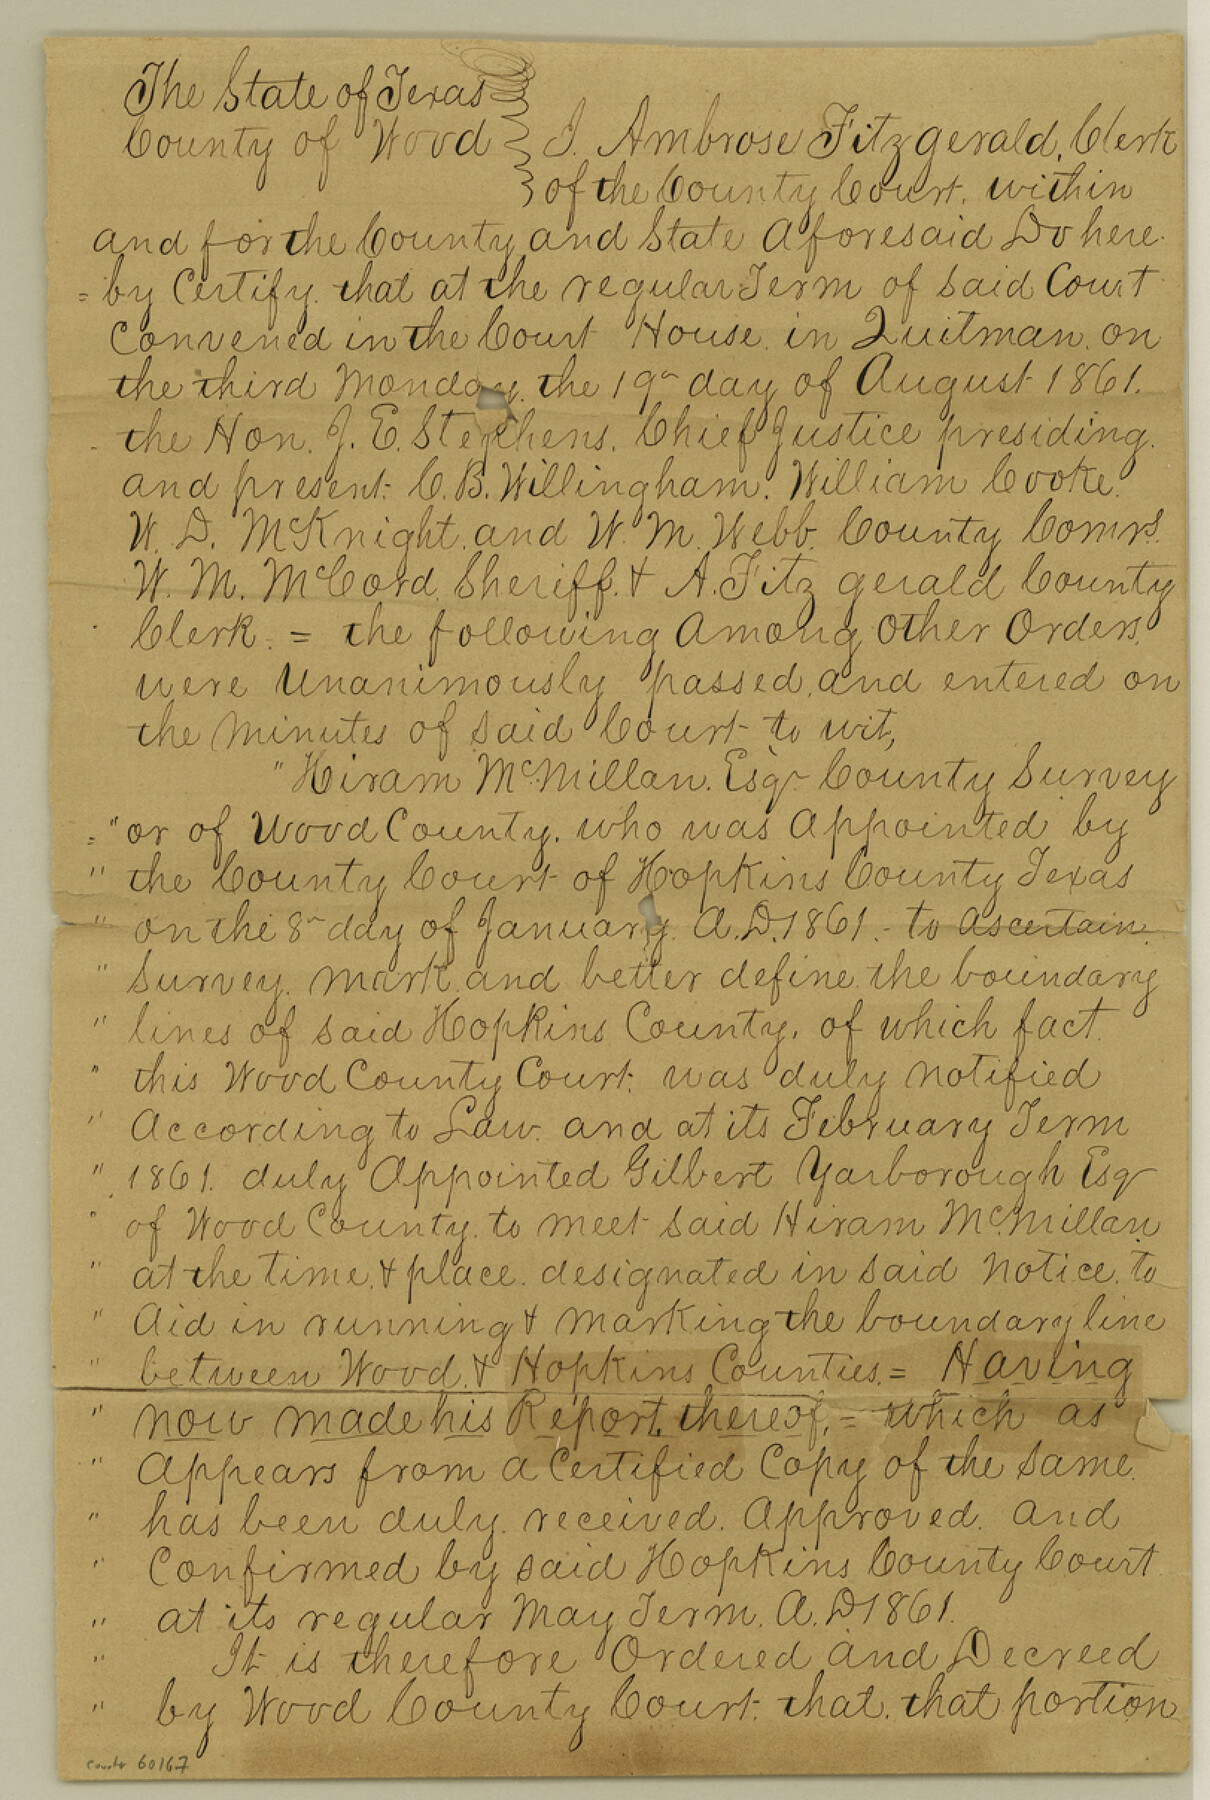 The State of Texas
County of Wood } I. Ambrose Fitzgerald, Clerk
of the County Court. within
and for the County and State Aforesaid Do here-
=by Certify. that at the regular Term of said Court
Convened in the Court House. in Quitman. on
the third Monday. the 19" day of August 1861.
the Hon. J. E. Stephens. Chief Justice presiding.
and present. C. B. Willingham. William Cooke.
W. D. McKnight. and W. M. Webb. County Comrs.
W. M. McCord. Sheriff. & A. Fitz gerald County
Clerk. = the following Among Other Orders.
were Unanimously passed. and entered on
the minutes of said Court to wit,
" Hiram McMillan. Esqr County Survey
="or of Wood County. who was Appointed by
" the County Court of Hopkins County Texas
" on the 8" day of January. A.D. 1861. - to Ascertain.
" Survey. mark. and better define the boundary
" lines of said Hopkins County. of which fact.
" this Wood County Court. was duly notified
" According to Law. and at its February Term
" 1861. duly Appointed Gilbert Yarborough Esqr
" of Wood County. to meet said Hiram McMillan.
" at the time. & place. designated in said Notice. to
" Aid in running & marking the boundary line
" between Wood. & Hopkins Counties. = Having
" now made his Report. thereof. = which as
" Appears from a Certified Copy of the same.
" has been duly. received. Approved. and
" Confirmed by said Hopkins County Court
" at its regular May Term. A.D 1861.
" It is therefore Ordered and Decreed
" by Wood County Court. that. that portion
Counter 60167